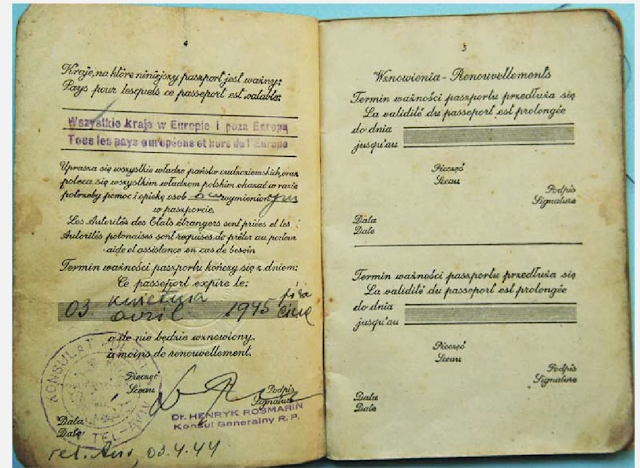 4
Kraje, na które niniejszy paszport jest ważny:
Pays pour lesquels ce passeport est valable:
Wszystkie kraje w Europie i poza Europą
Tous les pays européens et hors de l'Europe
Uprasza się wszystkie władze państw cudzoziemskich, oraz
poleca się wszystkim władzom polskim okazać w razie
potrzeby pomoc i opiekę osob wymienion
w paszporcie.
Les Autorités des Etats étrangers sont priées et les
Autorités polonaises sont requises de prêter au porteur
aide et assistance en cas de besoin
Termin ważności paszportu kończy się z dniem:
Ce passeport expire le:
03. kwietnia 1945
avril
o ile nie będzie wznowiony.
à moins de renouvellement.
Pieczęć Podpis
Sceau Signature
KONSULAT
TEL AVIV
Dr. HENRYK ROSMARIN
Konsul Generalny R. P.
Data
Date
Tel. Aviv, 03.4.44
3
Wznowienia - Renouvellements
Termin ważności paszportu przedłuża się
La validité du passeport est prolongée
do dnia
jusqu'au
Pieczęć
Sceau
Podpis
Signature
Data
Date
Termin ważności paszportu przedłuża się
La validité du passeport est prolongée
do dnia
jusqu'au
Pieczęć
Sceau
Podpis
Signature
Data
Date